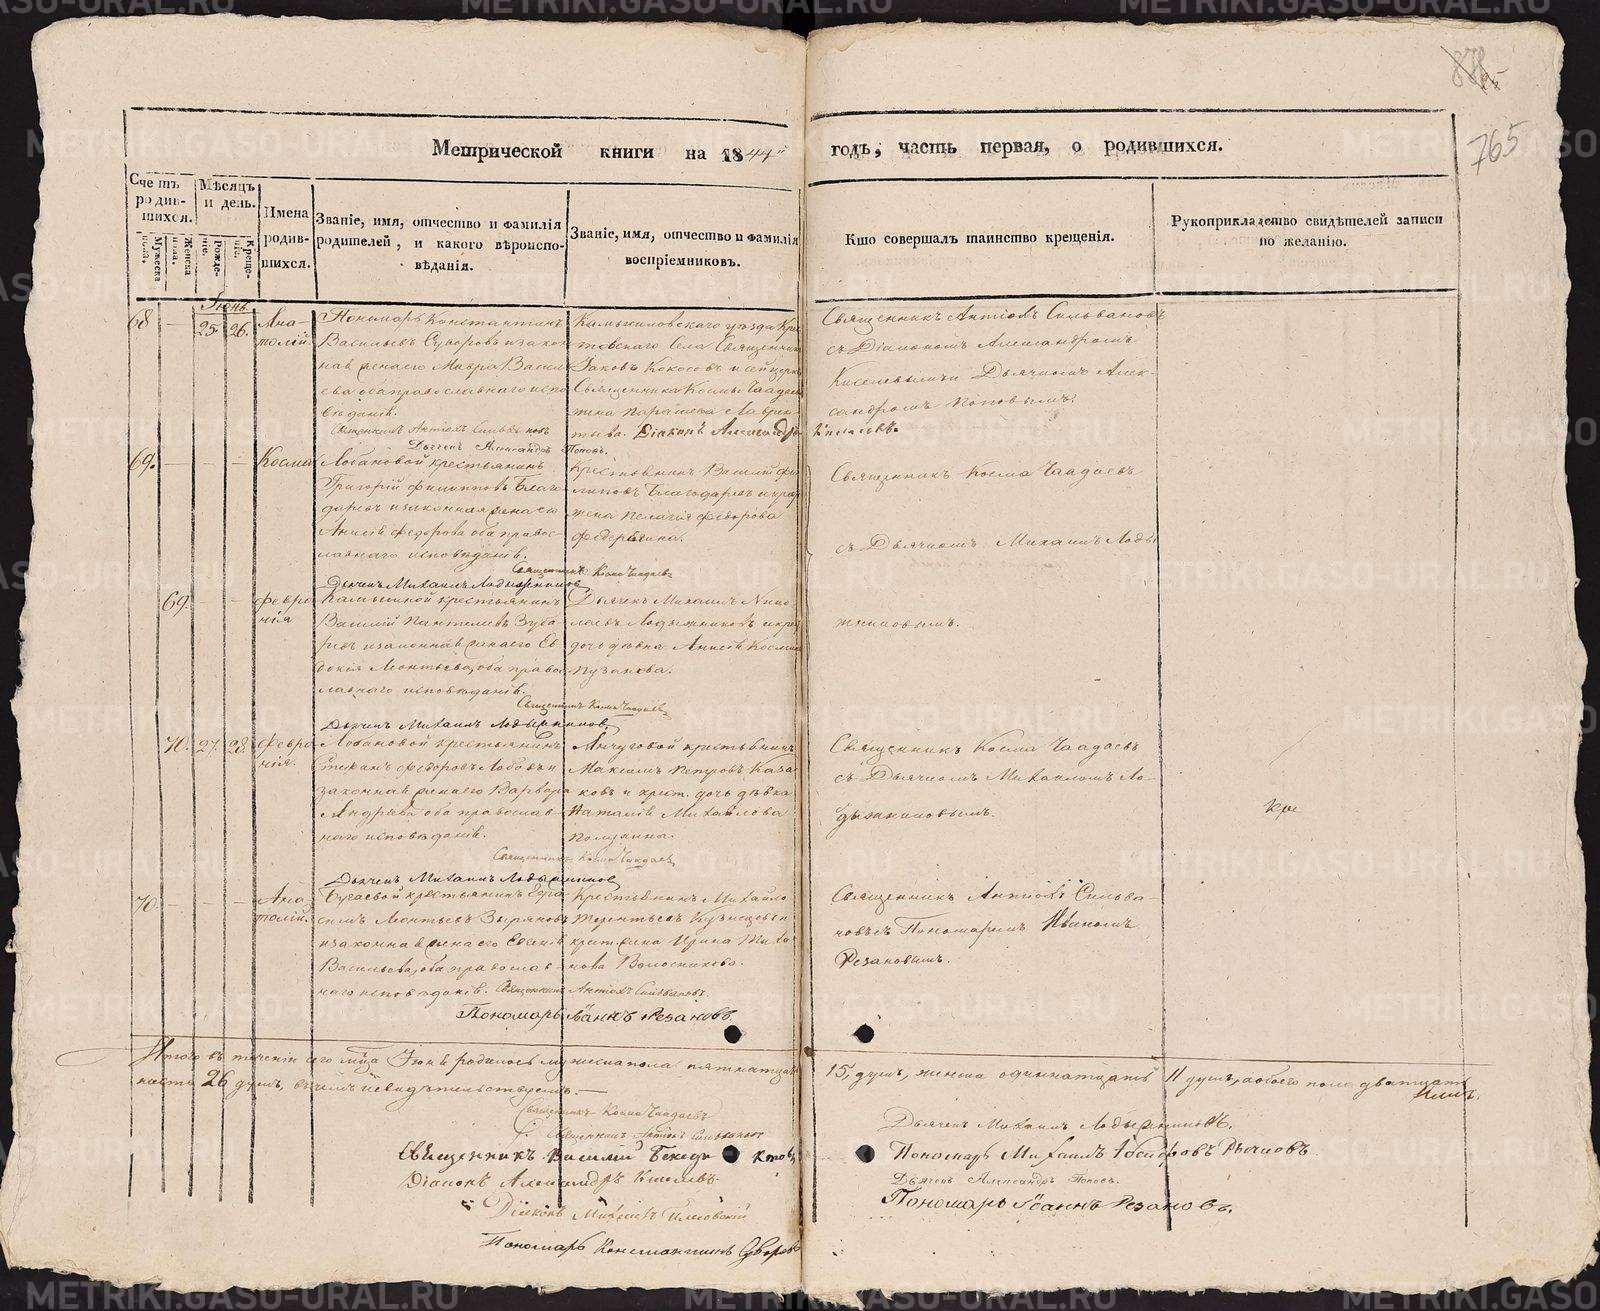 765
Метрической книги на 1844й годъ, часть первая, о родившихся.
Счетъ родившихся.
Мужеска пола.
Женска пола.
Мѣсяцъ и день.
Рожденіе.
Крещеніе.
Имена родившихся.
Званіе, имя, отчество и фамилія родителей, и какого вѣроисповѣданія.
Званіе, имя, отчество и фамилія воспріемниковъ.
Кто совершалъ таинство крещенія.
Рукоприкладство свидѣтелей записи по желанію.
Іюнь
68 — 25. 26.
Ана-
толій.
Пономарь Константинъ
Васильевъ Суворовъ и закон
ная жена его Мавра Василь
ева оба православнаго испо
вѣданія.
Камышловскаго уѣзда
Села Священникъ
Іаковъ Кокосовъ и
Священника Космы Чаадаева
жена Парасковья Лаврен-
тьева.
Священникъ Антіохъ Сильвановъ
съ Діакономъ Александромъ
Киселевымъ и Дьячкомъ Алек-
сандромъ Поповымъ.
Священникъ Антіохъ Сильвановъ
Діаконъ Александръ Киселевъ.
Дьячекъ Александръ Поповъ.
69. — — —
Косма
Лобановой крестьянинъ
Григорій Филипповъ Благо
даревъ и законная жена его
Анисія Федорова оба правос-
лавнаго исповѣданія.
Крестьянинъ Василій Фи
липовъ Благодаревъ и крес
жена Пелагія Федорова
Священникъ Косма Чаадаевъ
съ Дьячкомъ Михаилъ Лоды
жниковымъ.
Священникъ Косма Чаадаевъ
Дьячекъ Михаилъ Лодыжниковъ
69. — —
Февро
нія
крестьянинъ
Василій Пантелеевъ Зуба
ревъ и законная жена его Ев
докія Леонтьева, оба правос
лавнаго исповѣданія.
Дьячекъ Михаилъ Нико
лаевъ Лодыжниковъ и крес
дочь дѣвка Анисія Космина
Пузанова.
Священникъ Косма Чаадаевъ
Дьячекъ Михаилъ Лодыжниковъ
70. 27. 28.
Февро
нія.
Лобановой крестьянинъ
Стефанъ Федоровъ Лобовъ и
законная жена его Варвара
Андреева оба православ-
наго исповѣданія.
Анчуговой крестьянинъ
Максимъ Петровъ Каза
ковъ и крест. дочь дѣвка
Наталія Михайлова
Священникъ Косма Чаадаевъ
съ Дьячкомъ Михаиломъ Ло-
дыжниковымъ.
Священникъ Косма Чаадаевъ
Дьячекъ Михаилъ Лодыжниковъ
70. — — —
Ана
толій.
Бугаевой крестьянинъ Гера-
симъ Леонтьевъ Зыряновъ
и законная жена его Евгенія
Васильева, оба православ-
наго исповѣданія.
Крестьянинъ Михайло
Терентьевъ Кузнецовъ и
крест жена Ирина Тихо
нова Волосникова.
Священникъ Антіохъ Сильва-
новъ съ Пономаремъ Иваномъ
Резановымъ.
Священникъ Антіохъ Сильвановъ.
Пономарь Іоаннъ Резановъ.
Итого въ теченіи сего мѣсяца Іюня родилось мужеска пола пятнатцать 15, душъ, женска одиннатцать 11 душъ, а обоего пола дватцать
шесть 26 душъ, въ чемъ и свидѣтельствуемъ. —
Священникъ Косма Чаадаевъ
Священникъ Антіохъ Сильвановъ
Священникъ Василій
Діаконъ Александръ Киселевъ.
Діаконъ Михаилъ
Пономарь Константинъ Суворовъ
Дьячекъ Михаилъ Лодыжниковъ.
Пономарь Михаилъ Рычковъ
Дьячекъ Александръ Поповъ.
Пономарь Іоаннъ Резановъ.
METRIKI.GASO-URAL.RU